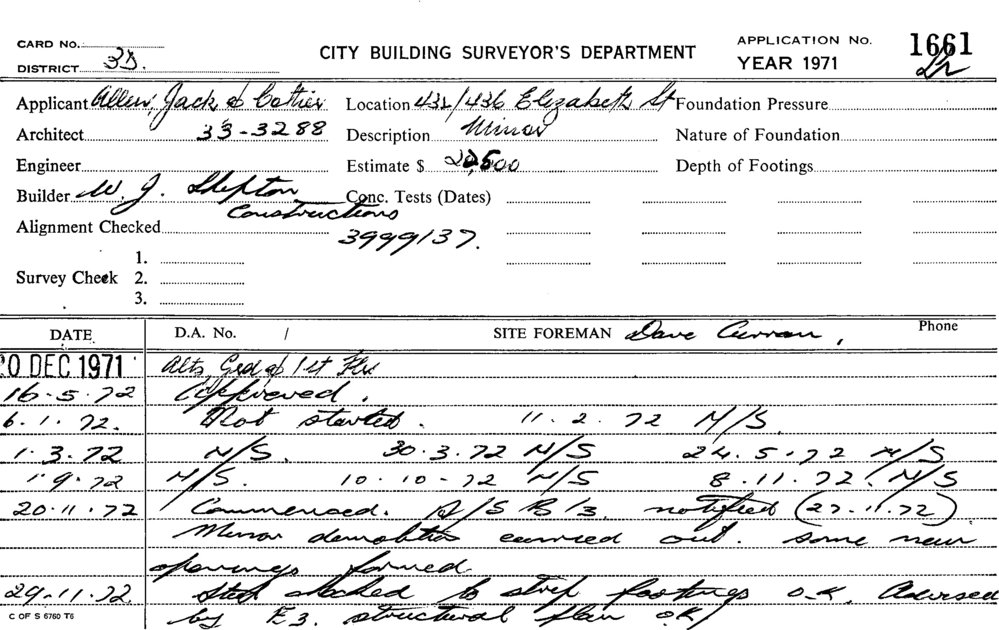 CARD No. CITY BUILDING SURVEYOR'S DEPARTMENT APPLICATION No. 1661
DISTRICT 3D. YEAR 1971
Applicant Allen, Jack & Cottier Location 432/436 Elizabeth St Foundation Pressure
Architect 33-3288 Description Minor Nature of Foundation
Engineer Estimate $ 22,500 Depth of Footings
Builder W. J. Constructions Conc. Tests (Dates)
Alignment Checked 3999137.
1.
Survey Check 2.
3.
DATE D.A. No. / SITE FOREMAN Dave Curran, Phone
0 DEC 1971 Alts Grd & 1st Flrs
16.5.72 Approved.
6.1.72. Not started. 11.2.72 N/S.
1.3.72 N/S. 30.3.72 N/S 24.5.72 N/S
1.9.72 N/S. 10.10-72 N/S 8.11.72. N/S
20.11.72 Commenced. B/3. notified (27.11.72)
Minor demolition carried out. some new
openings formed
29.11.72. Steel to strip footings O.K. Advised
C OF S 6760 T6 by E3. structural plan OK